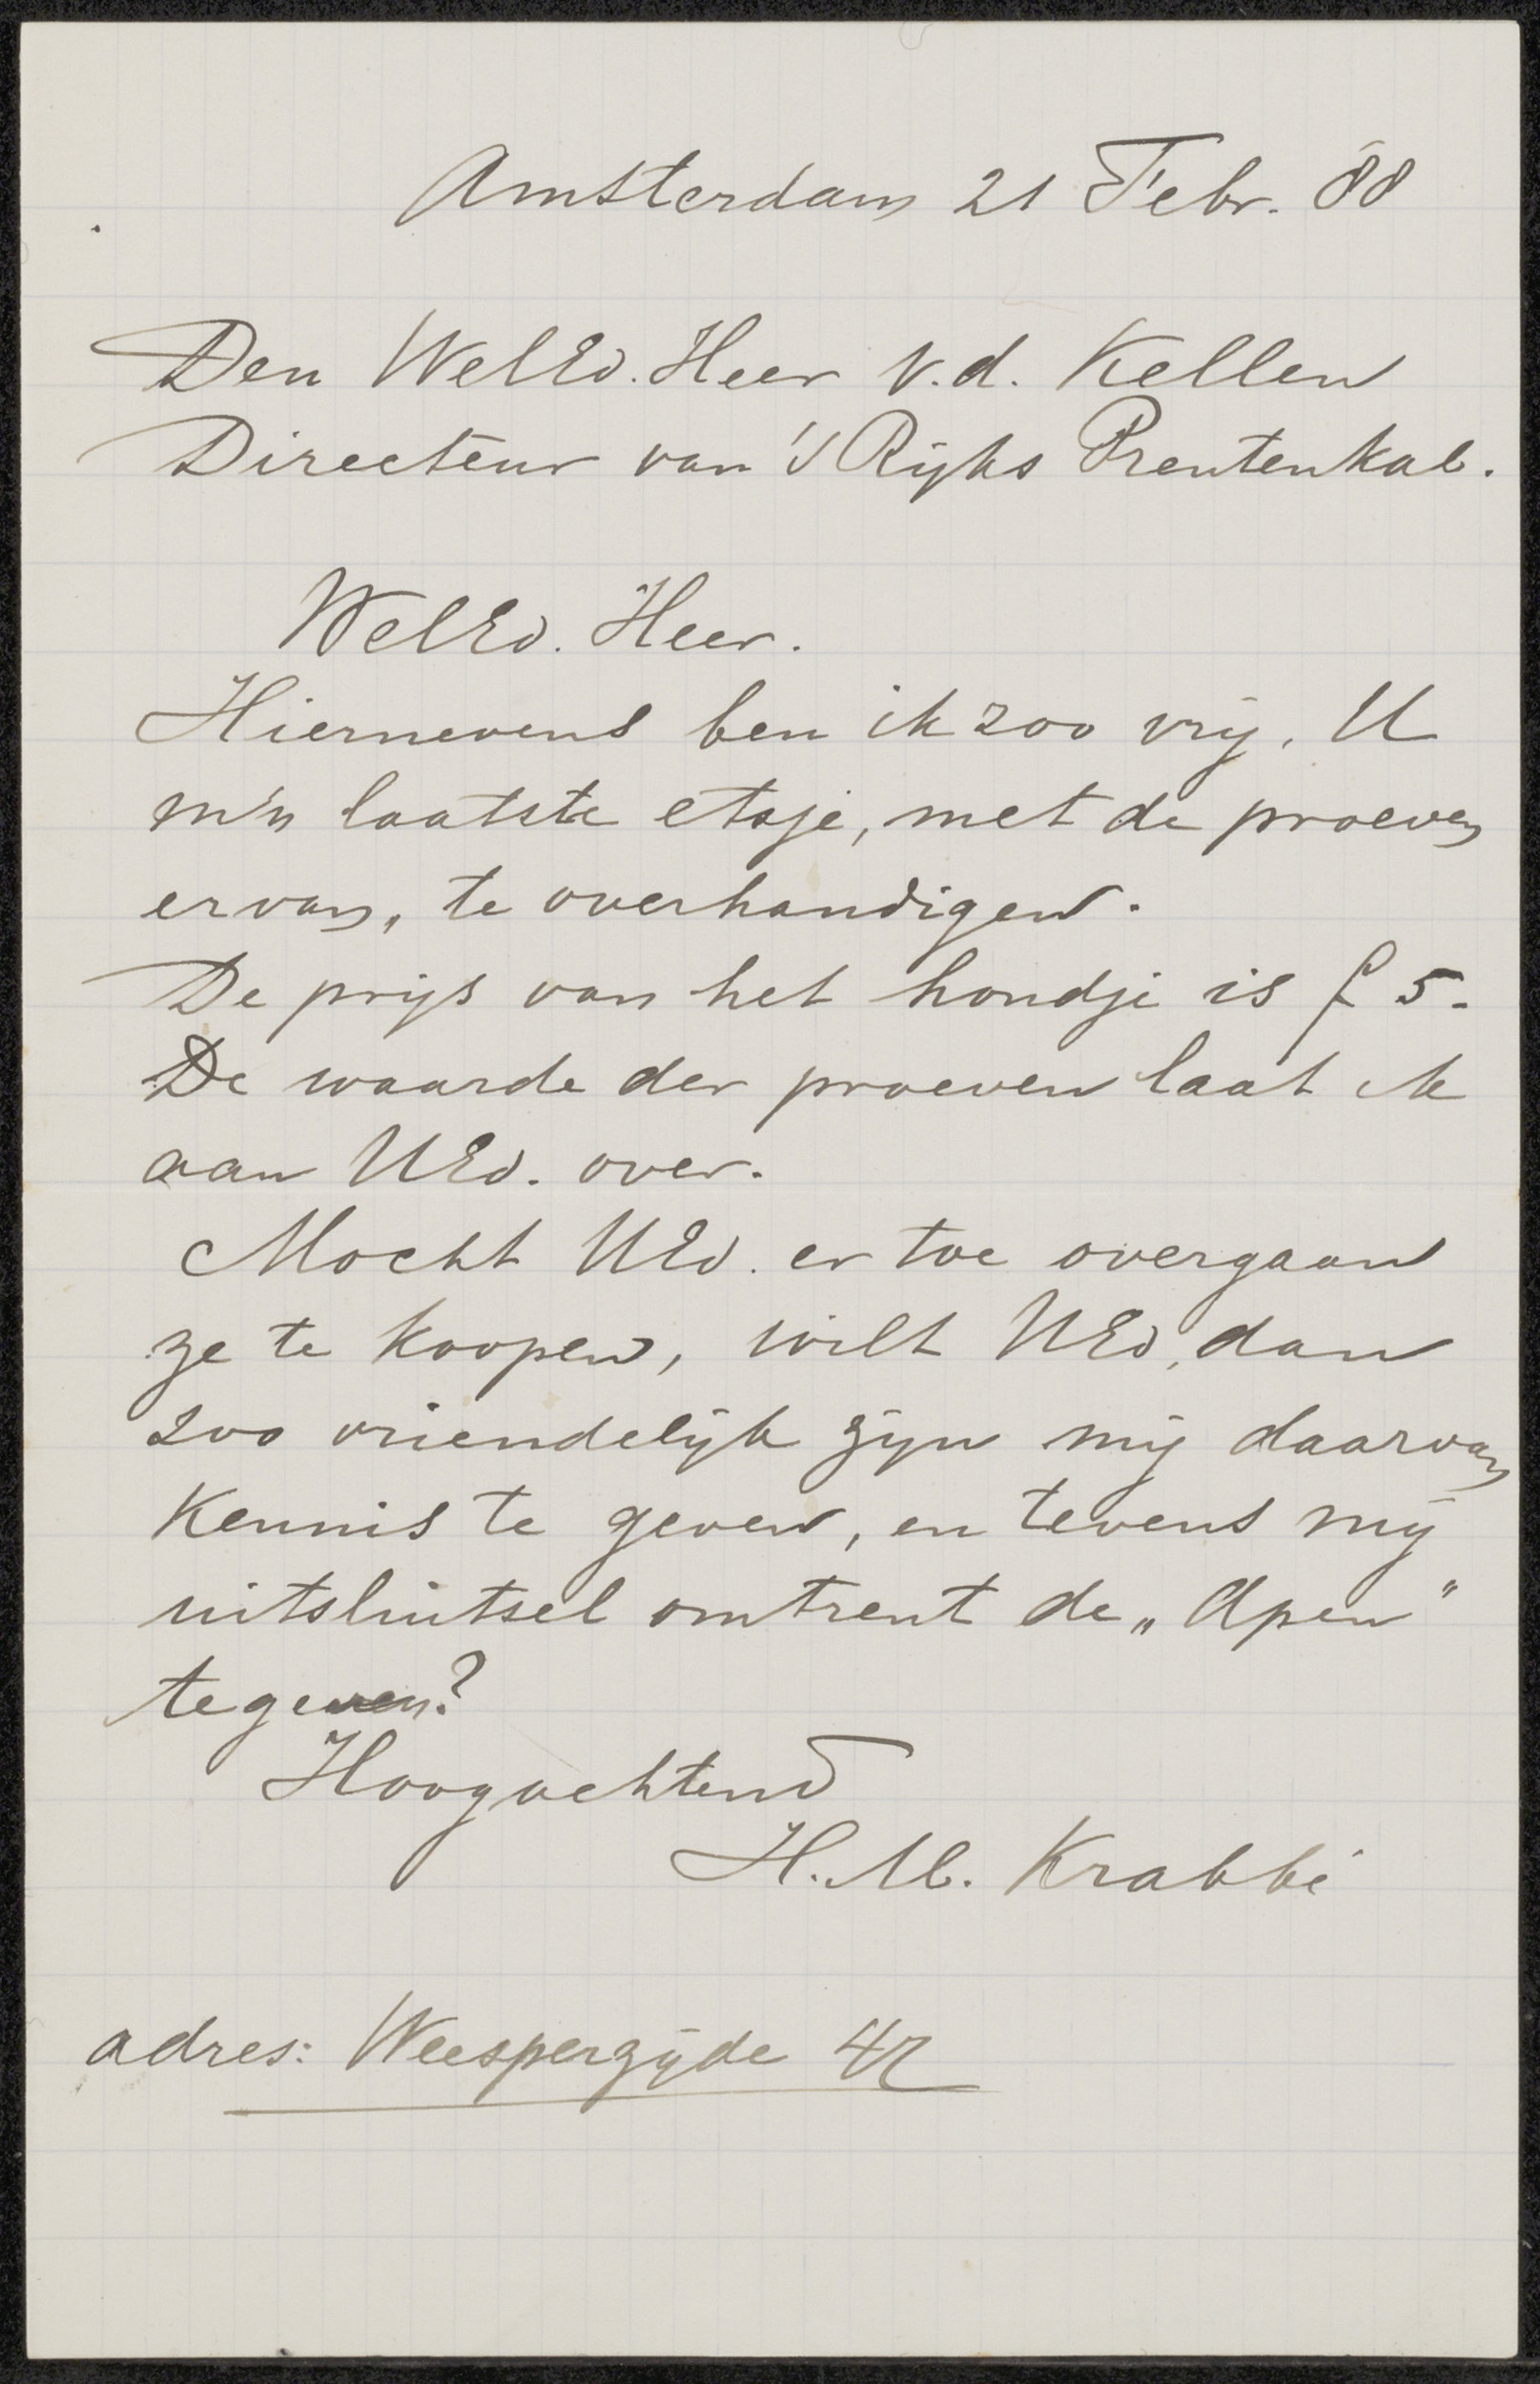 Amsterdam 21 Febr. 88
Den WelEd. Heer v.d. Kellen
Directeur van 's Rijks Prentenkab.
WelEd. Heer.
Hiernevens ben ik zoo vrij, U
m'n laatste etsje, met de proeven
ervan, te overhandigen.
De prijs van het hondje is f 5.
De waarde der proeven laat ik
aan UEd. over.
Mocht UEd. er toe overgaan
ze te koopen, wilt UEd. dan
zoo vriendelijk zijn mij daarvan
kennis te geven, en tevens mij
uitsluitsel omtrent de „Apen"
te geven?
Hoogachtend
H.M. Krabbé
adres: Weesperzijde 42